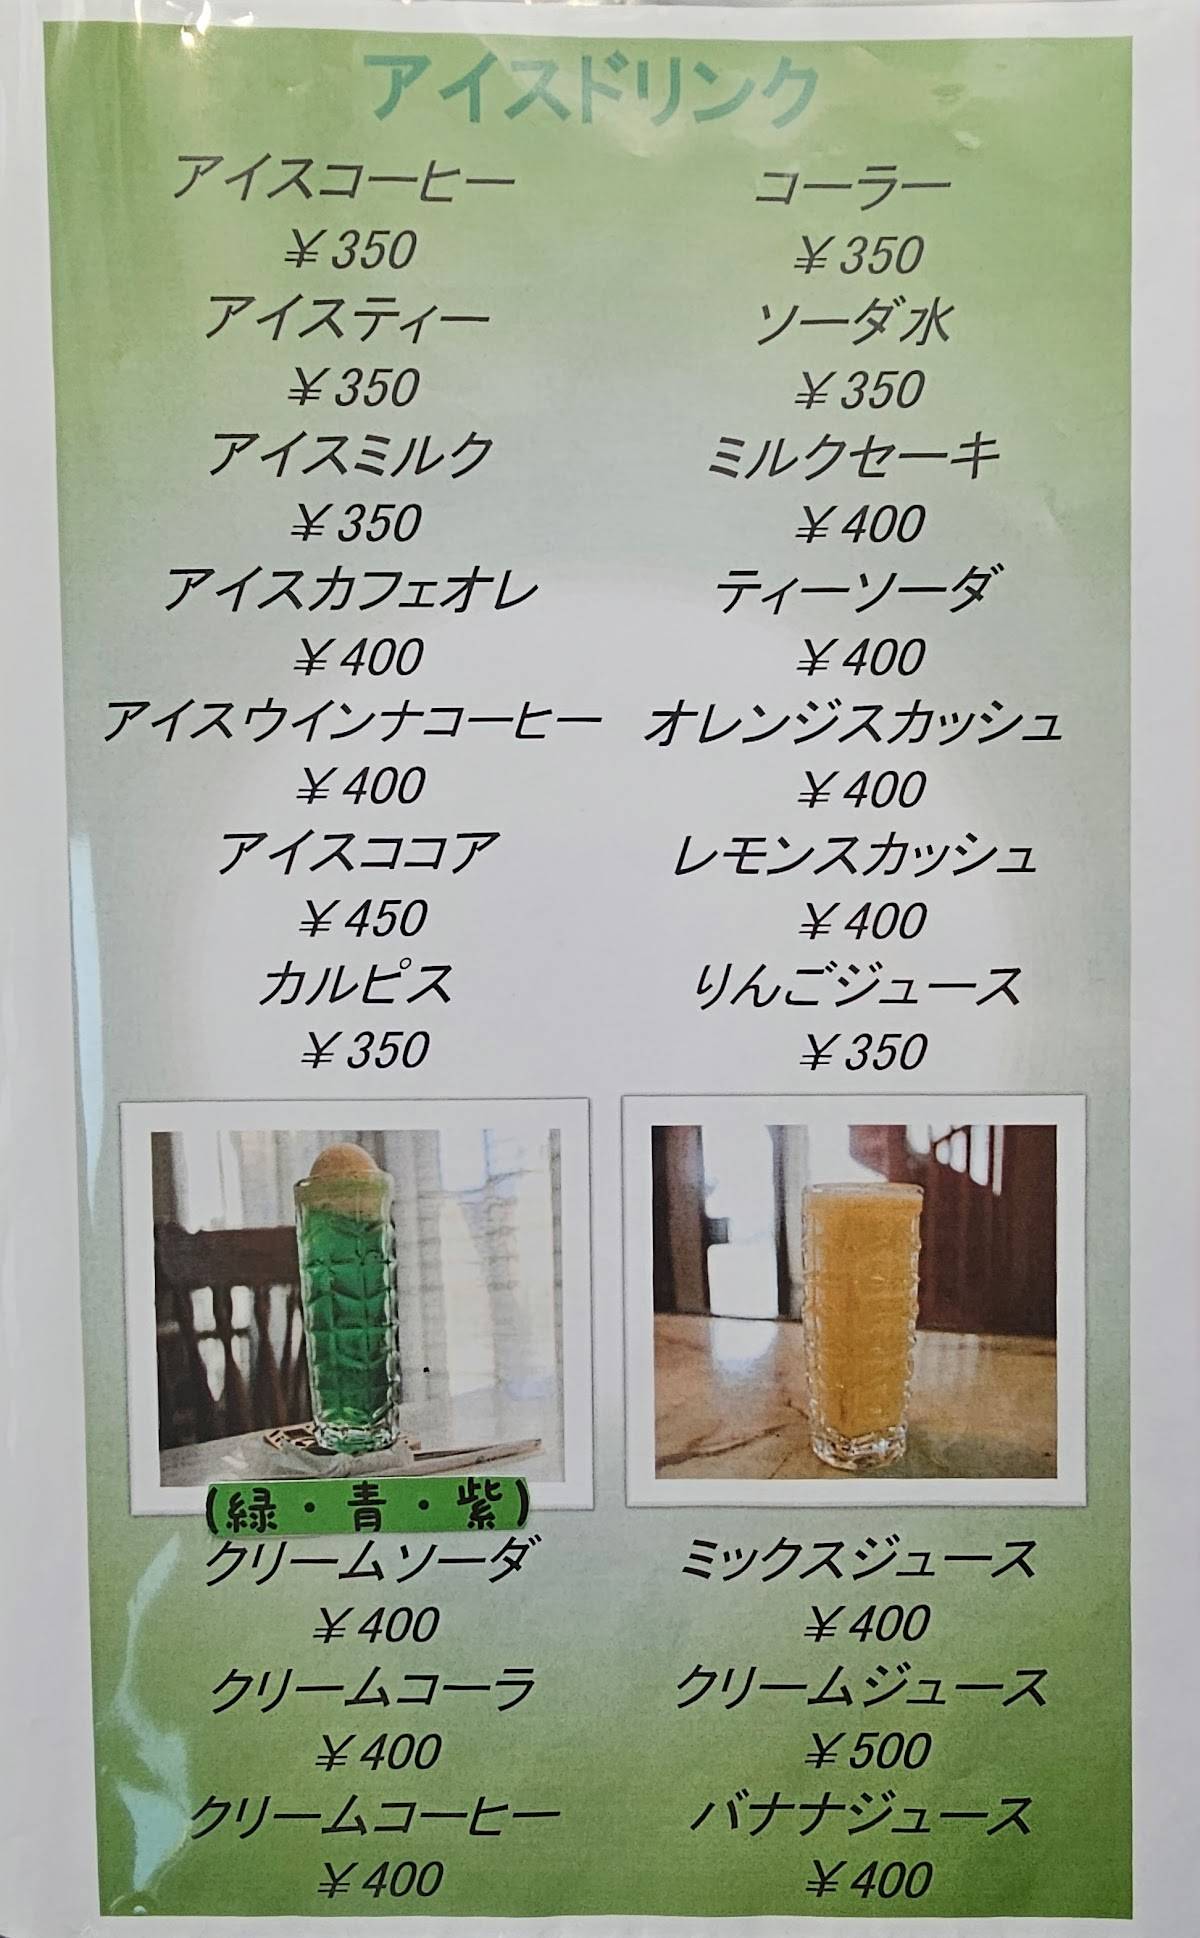 アイスドリンク
アイスコーヒー
￥350
アイスティー
￥350
アイスミルク
￥350
アイスカフェオレ
￥400
アイスウインナコーヒー
￥400
アイスココア
￥450
カルピス
￥350
(緑・青・紫)
クリームソーダ
￥400
クリームコーラ
￥400
クリームコーヒー
￥400
コーラー
￥350
ソーダ水
￥350
ミルクセーキ
￥400
ティーソーダ
￥400
オレンジスカッシュ
￥400
レモンスカッシュ
￥400
りんごジュース
￥350
ミックスジュース
￥400
クリームジュース
￥500
バナナジュース
￥400